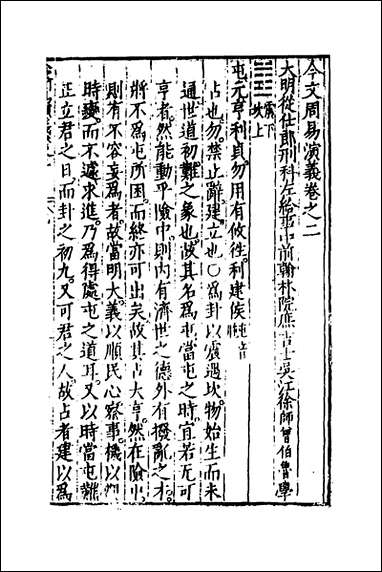 今文周易演義卷之二
大明從仕郎刑科左給事中前翰林院庶吉士吳江徐師曾伯魯學
震下
坎上
屯元亨利貞勿用有攸往利建侯
占也勿禁止辭建立也○為卦以震遇坎物始生而未
通世道初難之象也故其名為屯當屯之時宜若无可
亨者然能動乎險中則內有濟世之德外有撥亂之才
將不為屯所困而終亦可出矣故其占大亨然在險中
則有不容妄為者故當明大義以順民心察事機以
時變而不遽求進乃為得處屯之道耳又以時當屯難
正立君之日而卦之初九又可君之人故占者建以為